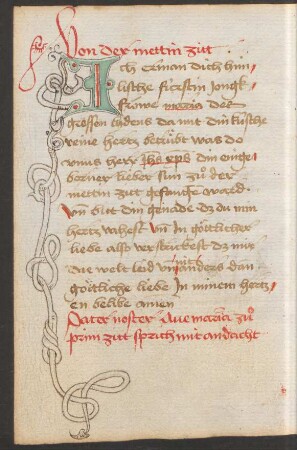 Von der mettin zitt
Ich erman dich him
lische fúrstin jungk
frowe maria des
grossen lidens da mit din kúsche
reine hertz betrúbt was do
unns herr Jhs xps din einge
borner lieber sun zuͦ der
mettin zitt gefangē ward
un bit din genade dz du min
hertz vahest un in goͤttlicher
liebe also verstrickest dz mir
die welt leid un nit anders dan
goͤttliche liebe in minem hertz
en belibe amen
Pater noster Ave maria zuͦ
prim zitt sprich mit andacht